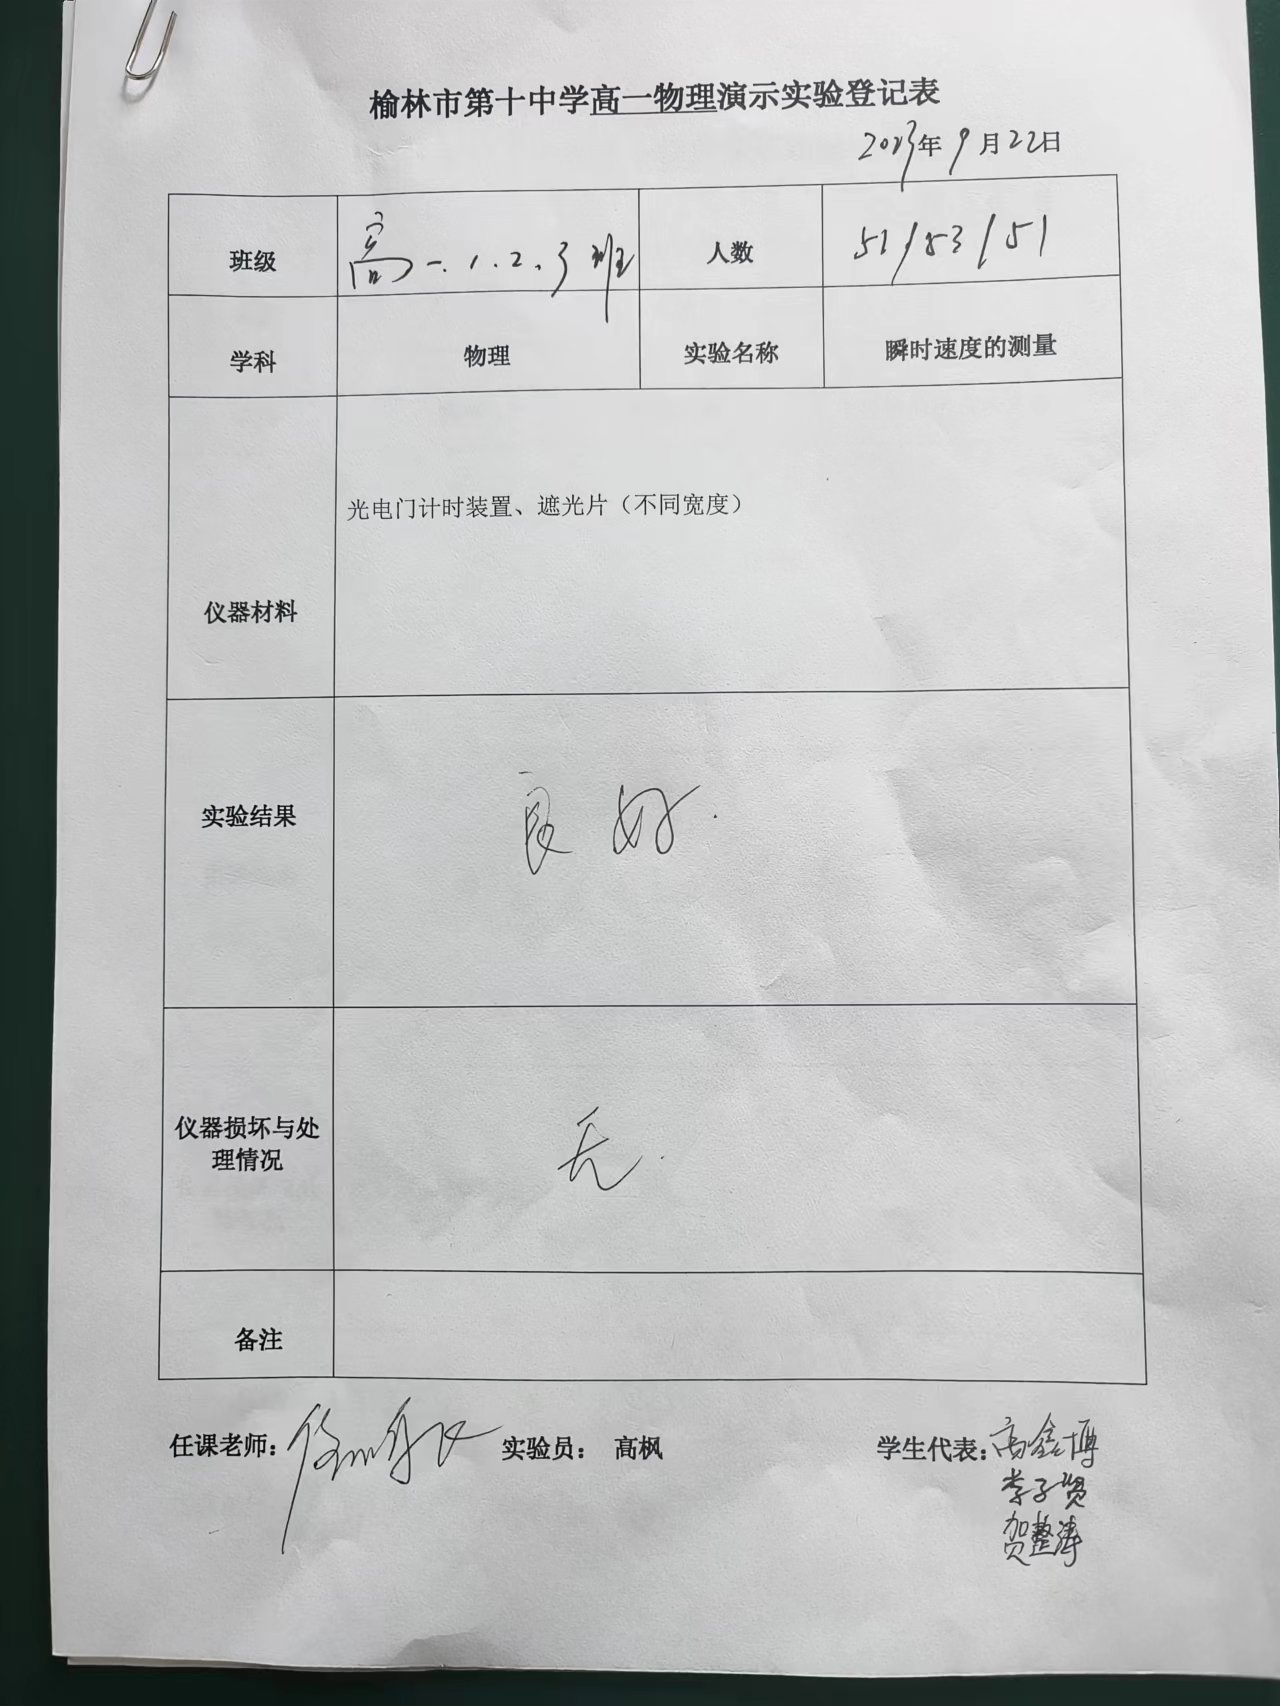 榆林市第十中学高一物理演示实验登记表
2023年9月22日
班级 高一.1.2.3班 人数 51/53/51
学科 物理 实验名称 瞬时速度的测量
仪器材料 光电门计时装置、遮光片（不同宽度）
实验结果 良好.
仪器损坏与处
理情况
无.
备注
任课老师： 实验员： 高枫 学生代表：高鑫博
李子贤
贺整涛